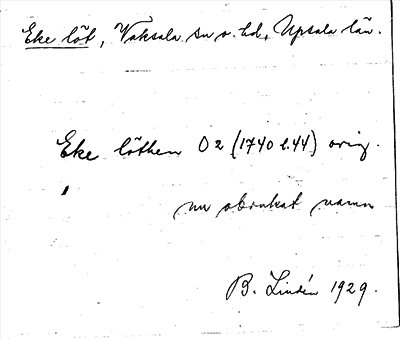 Eke löt, Vaksala sn o. hd, Upsala län.
Eke löthen O2 (1740 l. 44) orig.
nu obrukat namn
B. Lindén 1929.